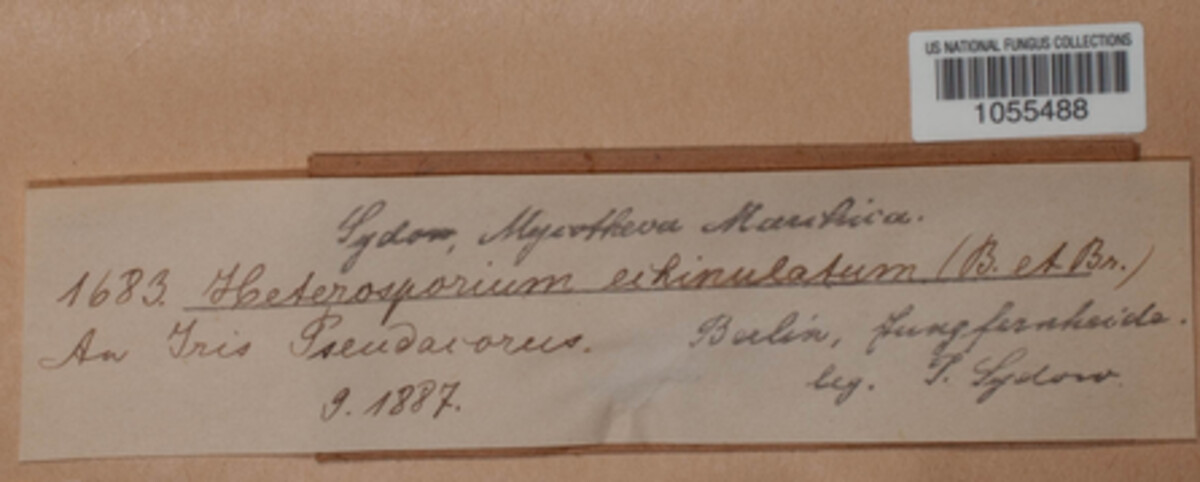 US NATIONAL FUNGUS COLLECTIONS
1055488
Sydow, Mycotheca Marchica.
1683. Heterosporium echinulatum (B. et Br.)
An Iris Pseudacorus. Berlin, Jungfernheide.
9. 1887. leg. P. Sydow.